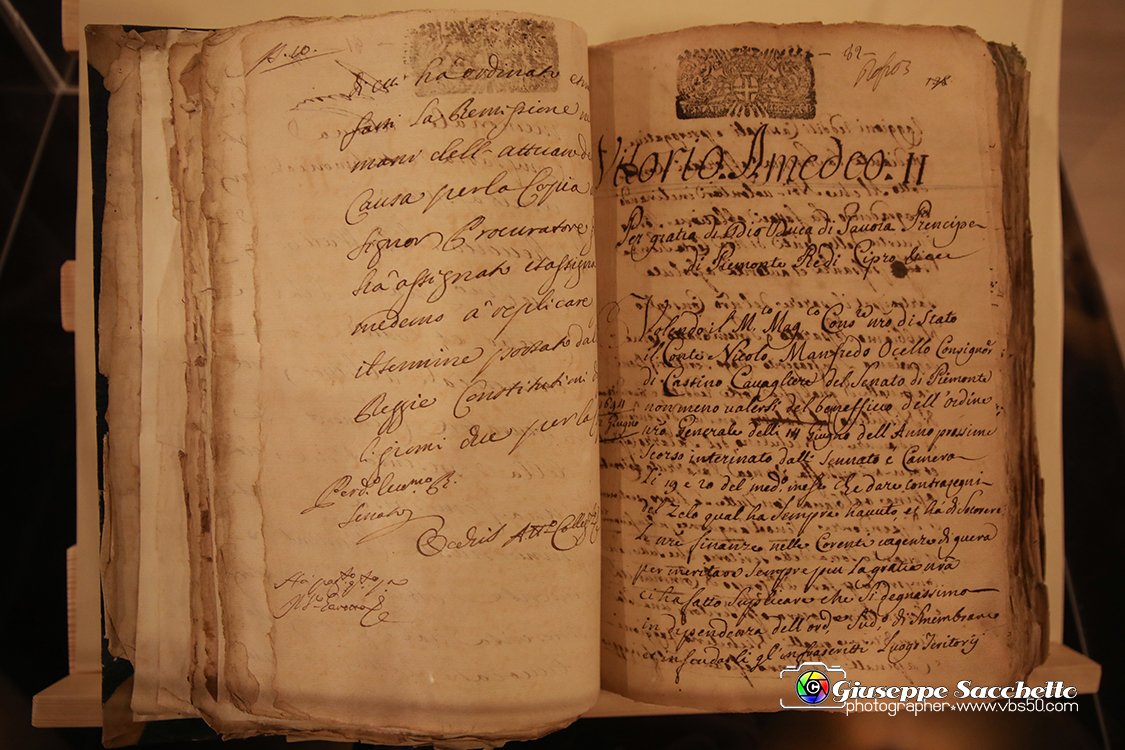 p. 10.
- 81
ha ordinato
farsi la Remissione
mani dell'attuaro di
Causa per la Copia
Signor Procuratore
ha assignato et assigna
medemo à replicare
il termine portato dal
Reggie Constitutioni
giorni due per la
Senato
- 82 -
Vitorio. Amedeo. II
Per gratia di Dio Duca di Savoia Prencipe
di Piemonte Re di Cipro
Volendo il M.to Mag.co Cons.re nro di Stato
il Conte Nicolò Manfredo Ocello Consignor
di Castino Cavagliere del Senato di Piemonte
non meno valersi del beneffitio dell'ordine
1694
giugno
nro Generale delli 14 Giugno dell'Anno prossime
scorso interinato dalli Sennato e Camera
li 19 e 20 del med.o mese che dare contrasegni
del Zelo qual ha sempre havuto, et ha di socorere
le nre finanze nelle Corenti urgenze di guera
per meritare sempre piu la gratia nra
ci ha fatto suplicare che si degnassimo
in dipendenza dell'ord.e sud.o di smembrare
et infeudarli gl'infrascritti Luogi Teritorij
Giuseppe Sacchetto
photographer www.vbs50.com